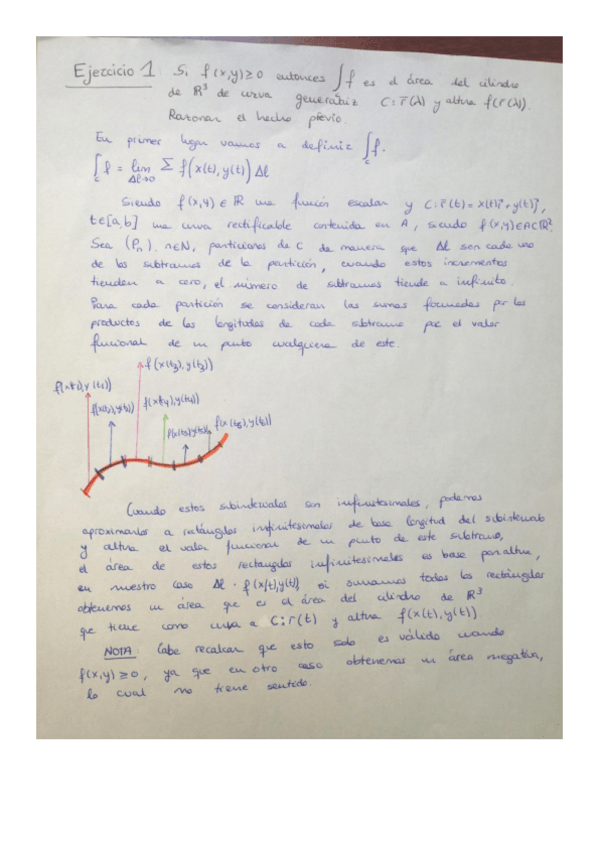 Ejercicio 1. Si f(x,y) ≥ 0 entonces ∫_C f es el área del cilindro
de ℝ³ de curva generatriz C: r̄(λ) y altura f(r̄(λ)).
Razonar el hecho previo.
En primer lugar vamos a definir ∫_C f.
∫_C f = lim_{Δl→0} Σ f(x(t), y(t)) Δl
Siendo f(x,y) ∈ ℝ una función escalar y C: r̄(t) = x(t)î + y(t)ĵ,
t∈[a,b] una curva rectificable contenida en A, siendo f(x,y)∈A⊂ℝ².
Sea (Pₙ), n∈ℕ, particiones de C de manera que Δl son cada uno
de los subtramos de la partición, cuando estos incrementos
tienden a cero, el número de subtramos tiende a infinito.
Para cada partición se consideran las sumas formadas por los
productos de las longitudes de cada subtramo por el valor
funcional de un punto cualquiera de este.
f(x(t₃), y(t₃))
f(x(t₁), y(t₁))
f(x(t₂), y(t₂))
f(x(t₄), y(t₄))
f(x(t₅), y(t₅))
f(x(t₆), y(t₆))
Cuando estos subintervalos son infinitesimales, podemos
aproximarlos a rectángulos infinitesimales de base longitud del subintervalo
y altura el valor funcional de un punto de este subtramo,
el área de estos rectángulos infinitesimales es base por altura,
en nuestro caso Δl · f(x(t), y(t)), si sumamos todos los rectángulos
obtenemos un área que es el área del cilindro de ℝ³
que tiene como curva a C: r̄(t) y altura f(x(t), y(t)).
NOTA: Cabe recalcar que esto solo es válido cuando
f(x,y) ≥ 0, ya que en otro caso obtenemos un área negativa,
lo cual no tiene sentido.